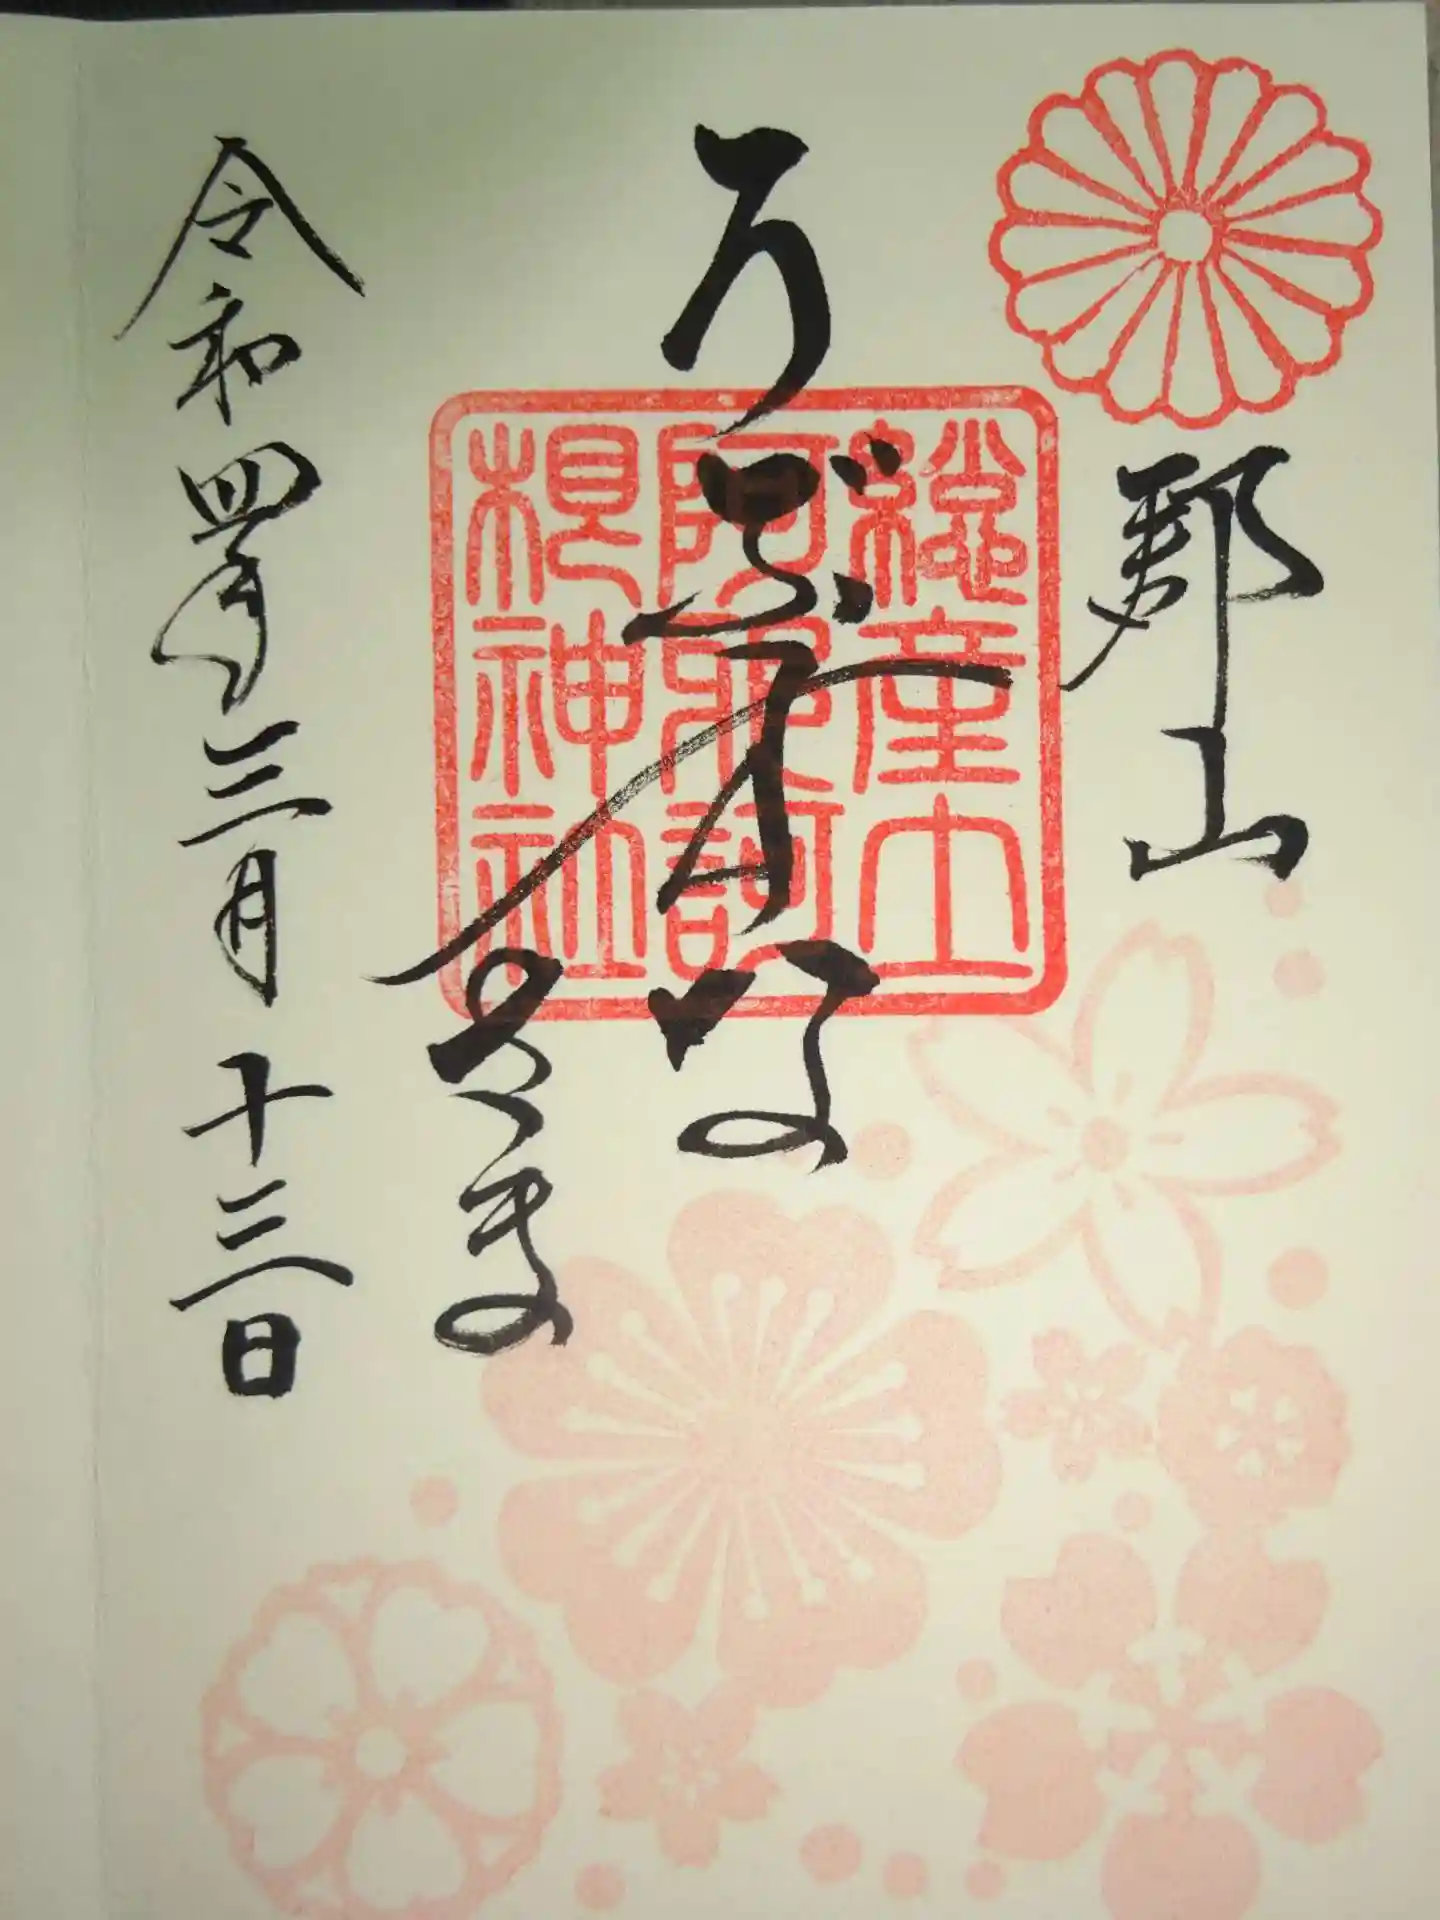 郡山
總産土
阿邪訶
根神社
うぶすな
さま
令和四年三月十三日